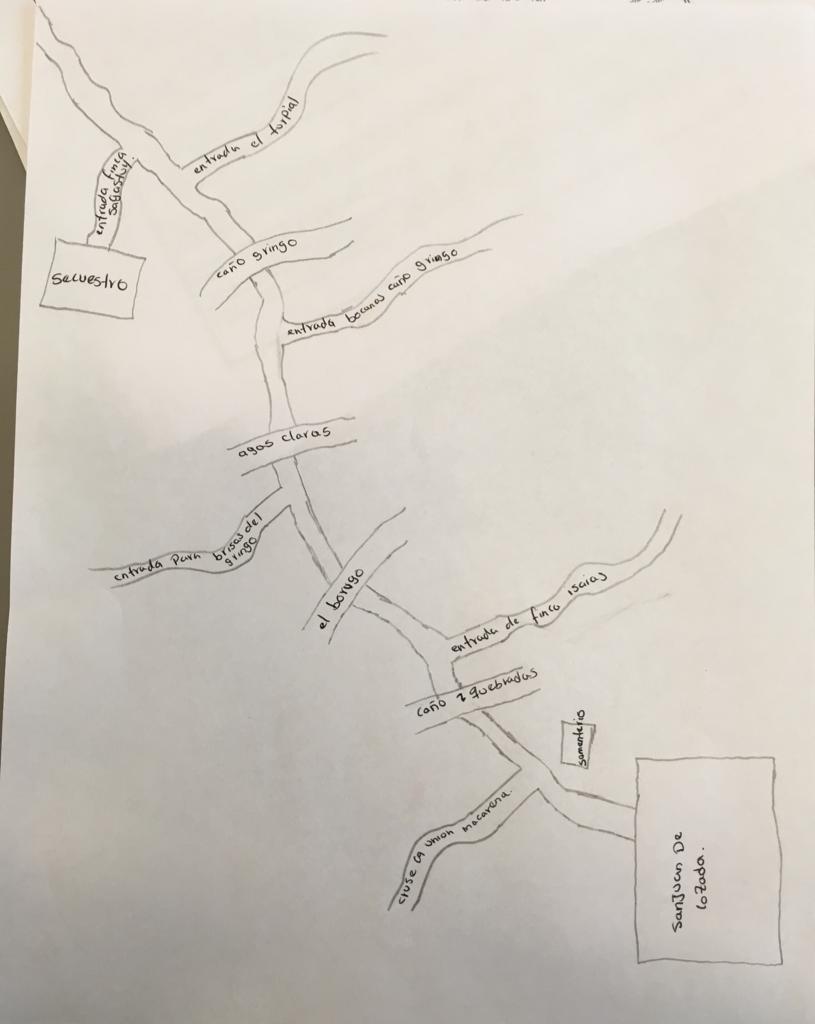 entrada el turpial
entrada finca
sagastuy.
caño gringo
secuestro
entrada bocanas caño gringo
agos claras
entrada para brisas del
gringo
el borugo
entrada de finca isaias
caño 2 quebradas
samenterio
cruse la union macarena.
SanJuan De
lozada.